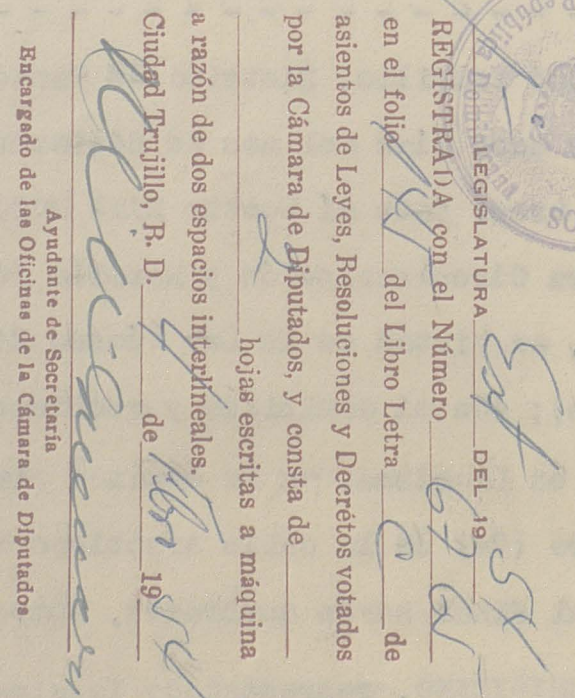 1a LEGISLATURA Ext DEL 1954
REGISTRADA con el Número
en el folio del Libro Letra C de
asientos de Leyes, Resoluciones y Decrétos votados
por la Cámara de Diputados, y consta de
2 hojas escritas a máquina
a razón de dos espacios interlineales.
Ciudad Trujillo, R. D. 4 de Febro 1954
Ayudante de Secretaría
Encargado de las Oficinas de la Cámara de Diputados